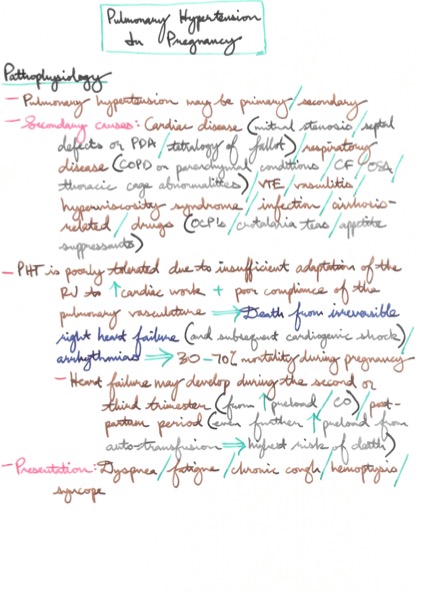 Pulmonary Hypertension
In Pregnancy
Pathophysiology
- Pulmonary hypertension may be primary/secondary
- Secondary causes: Cardiac disease (mitral stenosis/septal
defects or PDA/tetralogy of fallot)/respiratory
disease (COPD or parenchymal conditions/CF/OSA/
thoracic cage abnormalities)/VTE/vasculitis/
hyperviscosity syndrome/infection/cirrhosis-
related/drugs (OCPs/crotalaria teas/appetite
suppressants)
- PHT is poorly tolerated due to insufficient adaptation of the
RV to ↑cardiac work + poor compliance of the
pulmonary vasculature ⇒ Death from irreversible
right heart failure (and subsequent cardiogenic shock)/
arrhythmias ⇒ 30-70% mortality during pregnancy
- Heart failure may develop during the second or
third trimester (from ↑preload/CO)/post-
partum period (even further ↑preload from
auto-transfusion ⇒ highest risk of death)
- Presentation: Dyspnea/fatigue/chronic cough/hemoptysis/
syncope